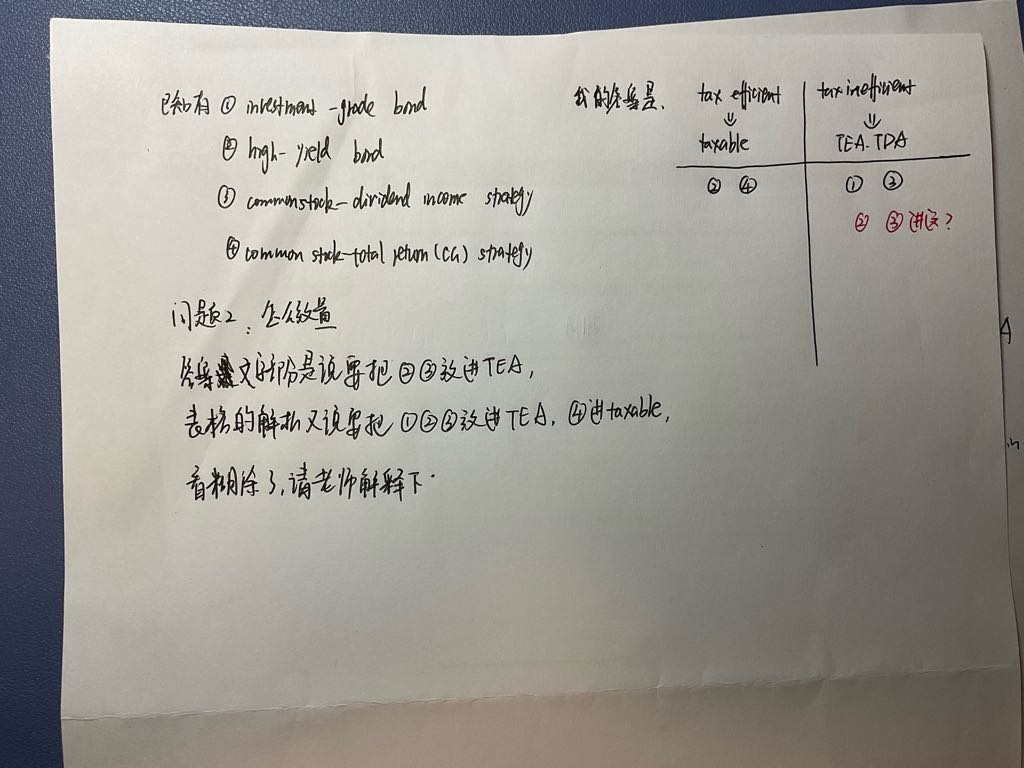 已知有 ① investment-grade bond
② high-yield bond
③ commonstock-dividend income strategy
④ common stock-total return(CG) strategy
我的答案是.
tax efficient
⇓
taxable
② ④
tax inefficient
⇓
TEA. TDA
① ③
② ③进这?
问题2: 怎么放置
答案 文字部分是说要把②③放进TEA,
表格的解析又说要把 ①②③放进TEA, ④进taxable,
看糊涂了,请老师解释下.